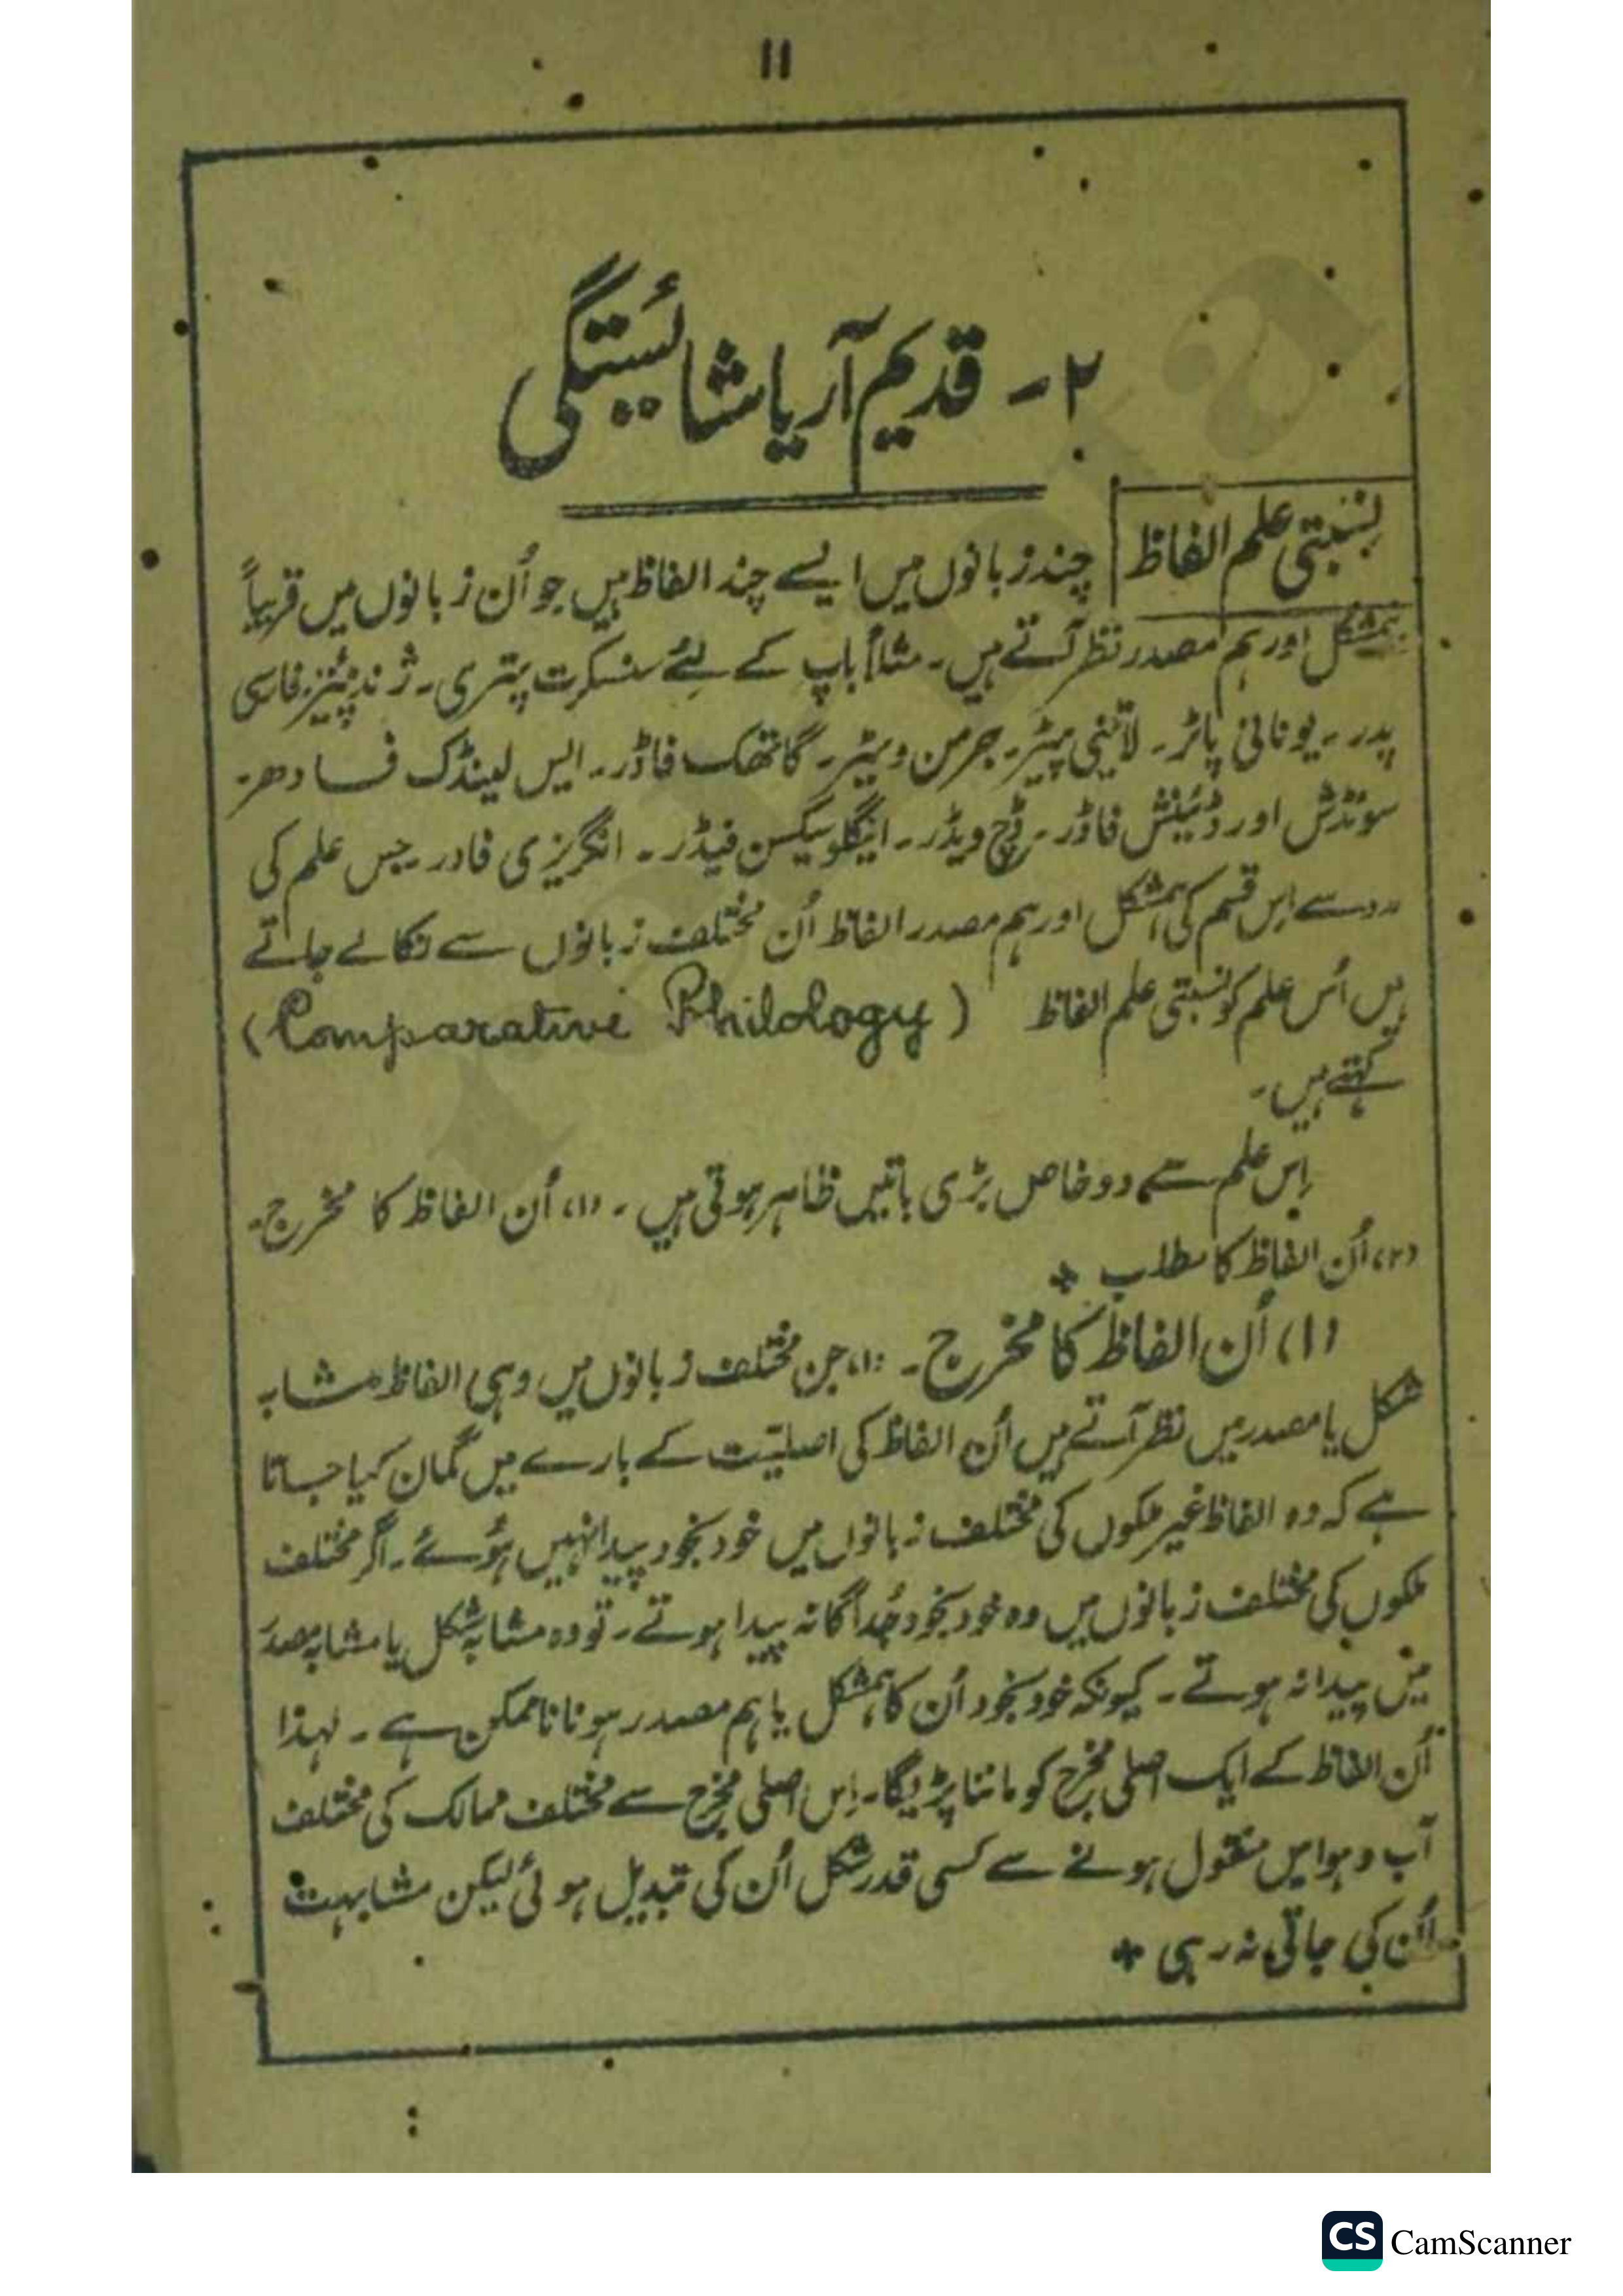 ۱۱
۲ - قدیم آریا شائستگی
نسبتی علم الفاظ
چند زبانوں میں ایسے چند الفاظ ہیں جو اُن زبانوں میں قریباً
ہمشکل اور ہم مصدر نظر آتے ہیں۔ مثلاً باپ کے لئے سنسکرت پتری۔ ژند پئیتر۔ فارسی
پدر۔ یونانی پاٹر۔ لاٹینی پیٹر۔ جرمن ویٹر۔ گاتھک فاڈر۔ ایس لینڈک فادھر۔
سوئڈش اور ڈئینش فاڈر۔ ڈچ ویڈر۔ اینگلو سیکسن فیڈر۔ انگریزی فادر۔ جس علم کی
رو سے اِس قسم کی ہمشکل اور ہم مصدر الفاظ اُن مختلف زبانوں سے نکالے جاتے
ہیں اُس علم کو نسبتی علم الفاظ (Comparative Philology)
کہتے ہیں۔
اِس علم سے دو خاص بڑی باتیں ظاہر ہوتی ہیں۔ (۱) اُن الفاظ کا مخرج۔
(۲) اُن الفاظ کا مطلب +
(۱) اُن الفاظ کا مخرج۔ (۱) جن مختلف زبانوں میں وہی الفاظ مشابہ
شکل یا مصدر میں نظر آتے ہیں اُن الفاظ کی اصلیّت کے بارے میں گمان کیا جاتا
ہے کہ وہ الفاظ غیر ملکوں کی مختلف زبانوں میں خود بخود پیدا نہیں ہوئے۔ اگر مختلف
ملکوں کی مختلف زبانوں میں وہ خود بخود جُداگانہ پیدا ہوتے۔ تو وہ مشابہ شکل یا مشابہ مصدر
میں پیدا نہ ہوتے۔ کیونکہ خود بخود اُن کا ہمشکل یا ہم مصدر ہونا ناممکن ہے۔ لہذا
اُن الفاظ کے ایک اصلی مخرج کو ماننا پڑیگا۔ اِس اصلی مخرج سے مختلف ممالک کی مختلف
آب و ہوا میں منقول ہونے سے کسی قدر شکل اُن کی تبدیل ہوئی لیکن مشابہت
اُن کی جاتی نہ رہی +
CS CamScanner